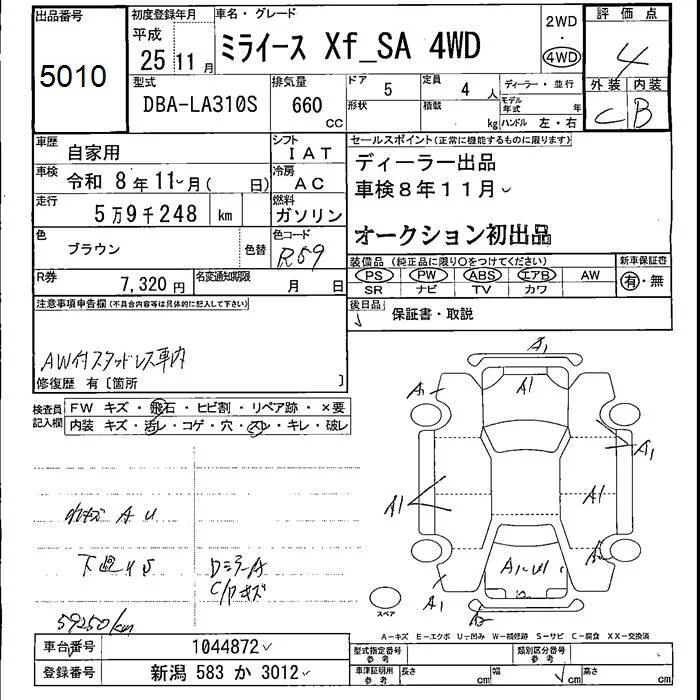 出品番号
5010
初度登録年月
平成
25 11月
車名・グレード
ミライース Xf_SA 4WD
2WD
・
4WD
評価点
4
外装 内装
C B
型式
DBA-LA310S
排気量
660
CC
ドア 5
形状
定員 4人
積載 kg
ディーラー・並行
モデル年式 年
ハンドル 左・右
車歴
自家用
シフト
IAT
セールスポイント(正常に機能するものに限ります)
ディーラー出品
車検8年11月
オークション初出品
車検
令和 8年11月( 日)
冷房
AC
走行
5万9千248 km
燃料
ガソリン
色
ブラウン
色替
色コード
R59
装備品(純正品に限り○をつけてください)
PS PW ABS エアB AW
SR ナビ TV カワ
新車保証書
有・無
R券
7,320円
名変通知期限
月 日
後日品
保証書・取説
注意事項申告欄(不具合内容等は具体的に記入して下さい)
AW付スタッドレス車内
修復歴 有〔箇所 〕
検査員記入欄
FW キズ・飛石・ヒビ割・リペア跡・×要
内装 キズ・汚レ・コゲ・穴・スレ・キレ・破レ
A U
下廻サビ
Dミラー A
C/P キズ
59250/km
A1
A1
A1
A1
A1
A1
A1
スペア
A-キズ E-エクボ U-凹み W-補修跡 S-サビ C-腐食 XX-交換済
車台番号
1044872
登録番号
新潟 583 か 3012
型式指定番号
参考
類別区分番号
参考
車庫証明用
参考
長さ cm 幅 cm 高さ cm